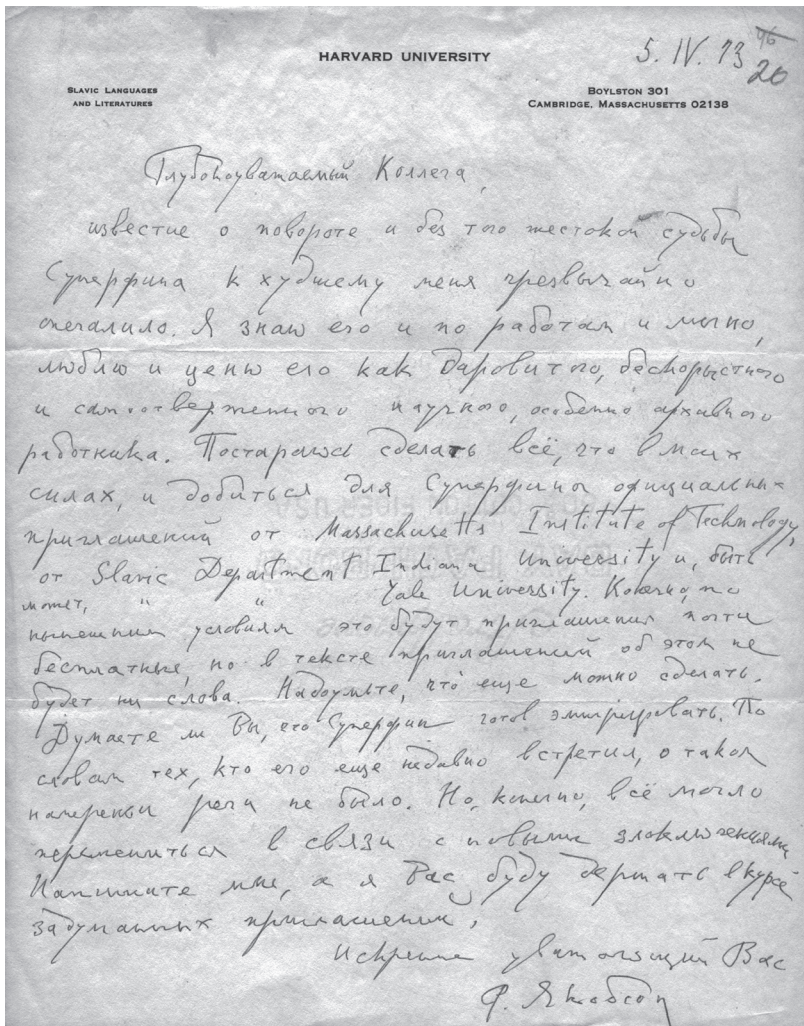 HARVARD UNIVERSITY
5. IV. 73
46
20
SLAVIC LANGUAGES
AND LITERATURES
BOYLSTON 301
CAMBRIDGE, MASSACHUSETTS 02138
Глубокоуважаемый Коллега,
известие о повороте и без того жестокой судьбы
Суперфина к худшему меня чрезвычайно
опечалило. Я знаю его и по работам и лично,
люблю и ценю его как даровитого, бескорыстного
и самоотверженного научного, особенно архивного
работника. Постараюсь сделать всё, что в моих
силах, и добиться для Суперфина официальных
приглашений от Massachusetts Institute of Technology,
от Slavic Department Indiana University и, быть
может, " " Yale University. Конечно, по
нынешним условиям это будут приглашения почти
бесплатные, но в тексте приглашений об этом не
будет ни слова. Надоумьте, что еще можно сделать.
Думаете ли Вы, что Суперфин готов эмигрировать. По
словам тех, кто его еще недавно встретил, о таком
намереньи речи не было. Но, конечно, всё могло
перемениться в связи с новыми злоключениями
Напишите мне, а я Вас буду держать в курсе
задуманных приглашений.
Искренне уважающий Вас
Р. Якобсон